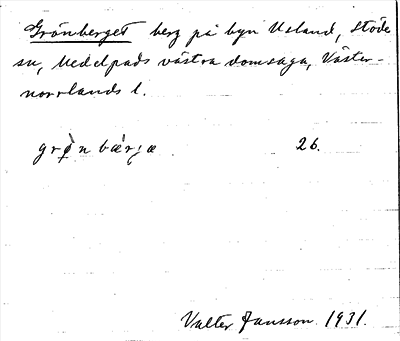 Grönberget berg på byn Usland, Stöde
sn, Medelpads västra domsaga, Väster-
norrlands l.
grø̀n bæ̀rjæ 26.
Valter Jansson 1931.